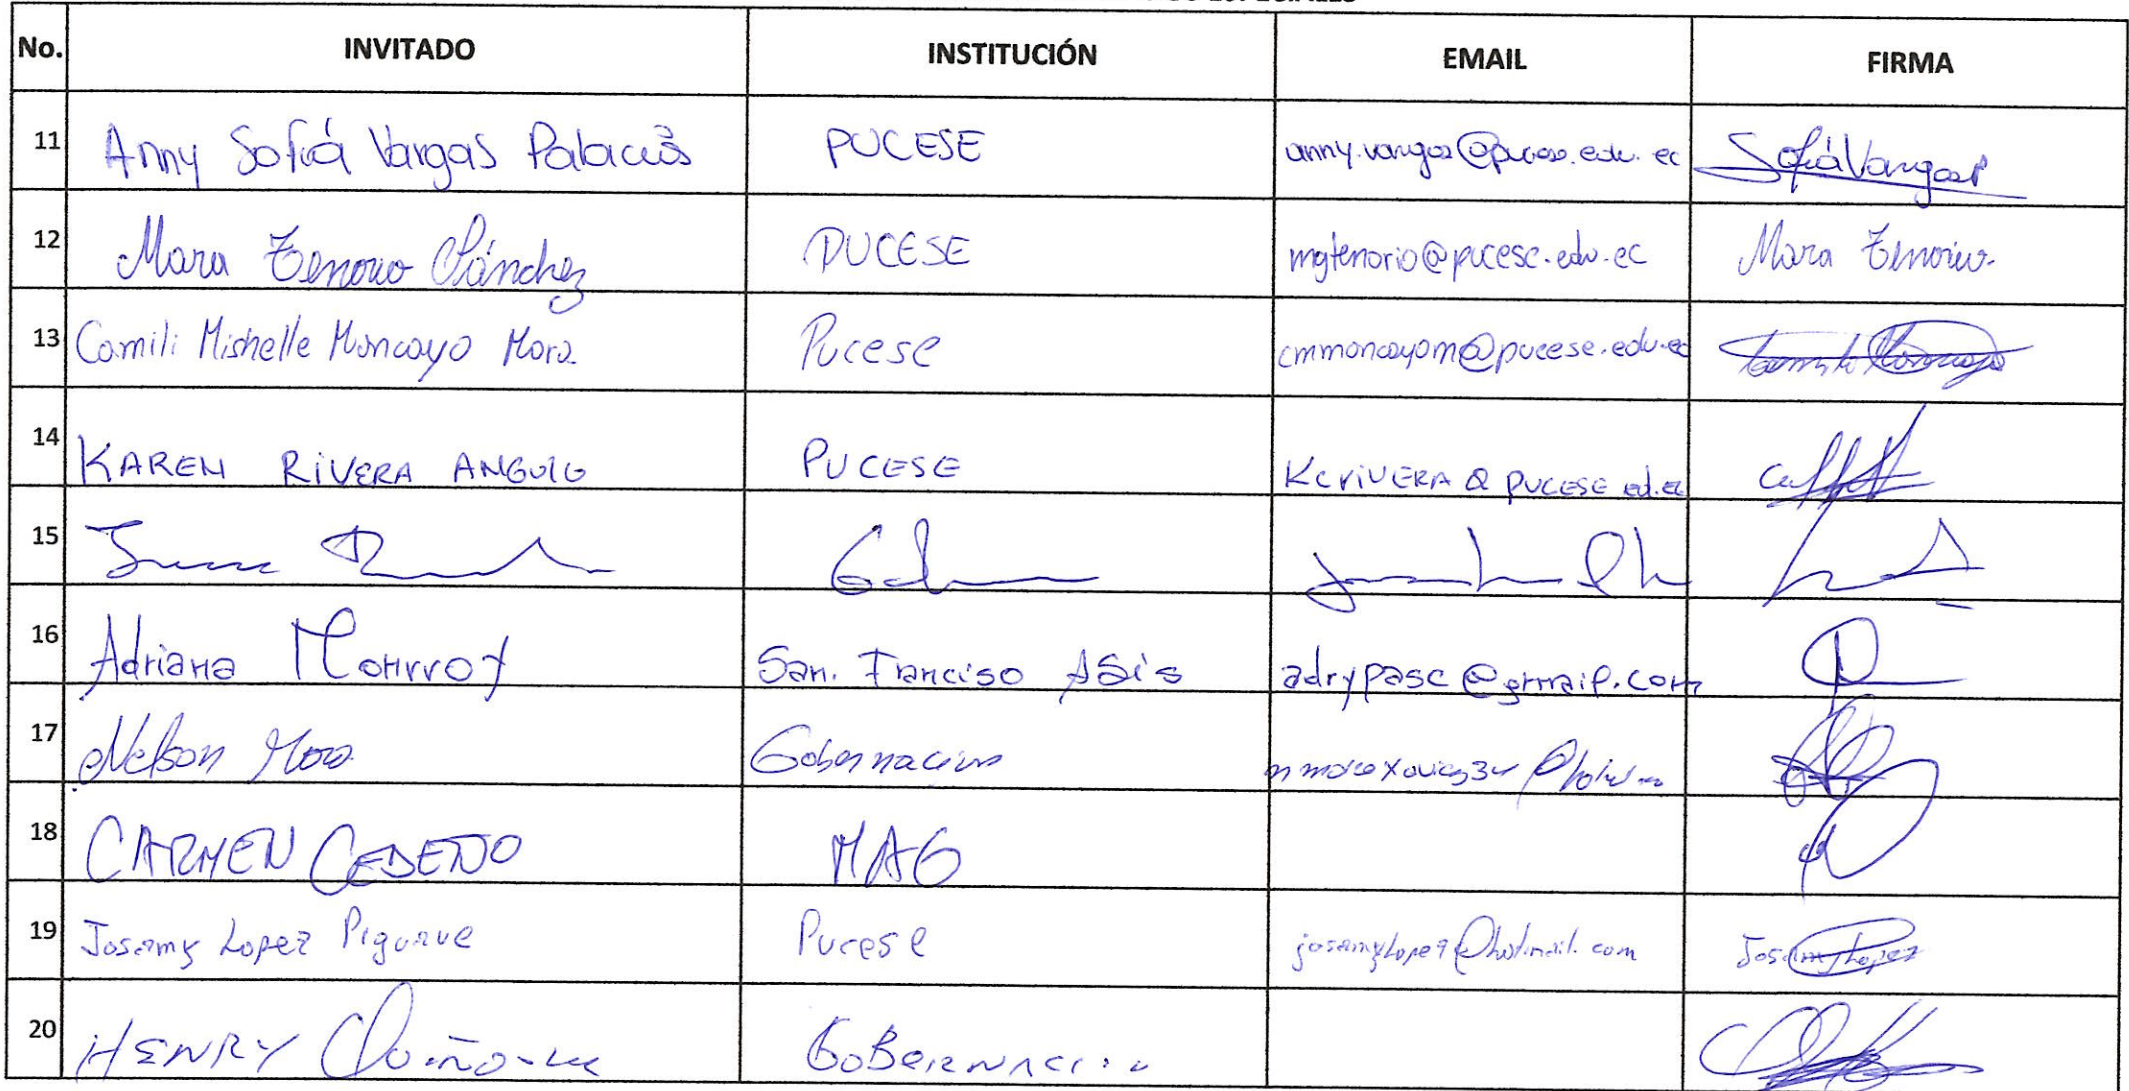 No. INVITADO INSTITUCIÓN EMAIL FIRMA
11 Anny Sofiá Vargas Palacios PUCESE anny.vargas@pucese.edu.ec Sofiá Vargas P
12 Mara Tenorio Sánchez PUCESE mgtenorio@pucese.edu.ec Mara Tenorio.
13 Camili Mishelle Moncayo Mora. Pucese cmmoncayom@pucese.edu.ec
14 KAREN RiVERA ANGULO PUCESE KcriVERA @ PUCESE ed.ec
15
16 Adriana Monrroy San. Franciso ASis adrypasc@gmail.com
17 Nelson Mora Gobernacion
18 CARMEN CEDEÑO MAG
19 Josamy Lopez Piguave Pucese josamylope9@hotmail.com Josamy Lopez
20 HENRY Quiñonez GoBernacion